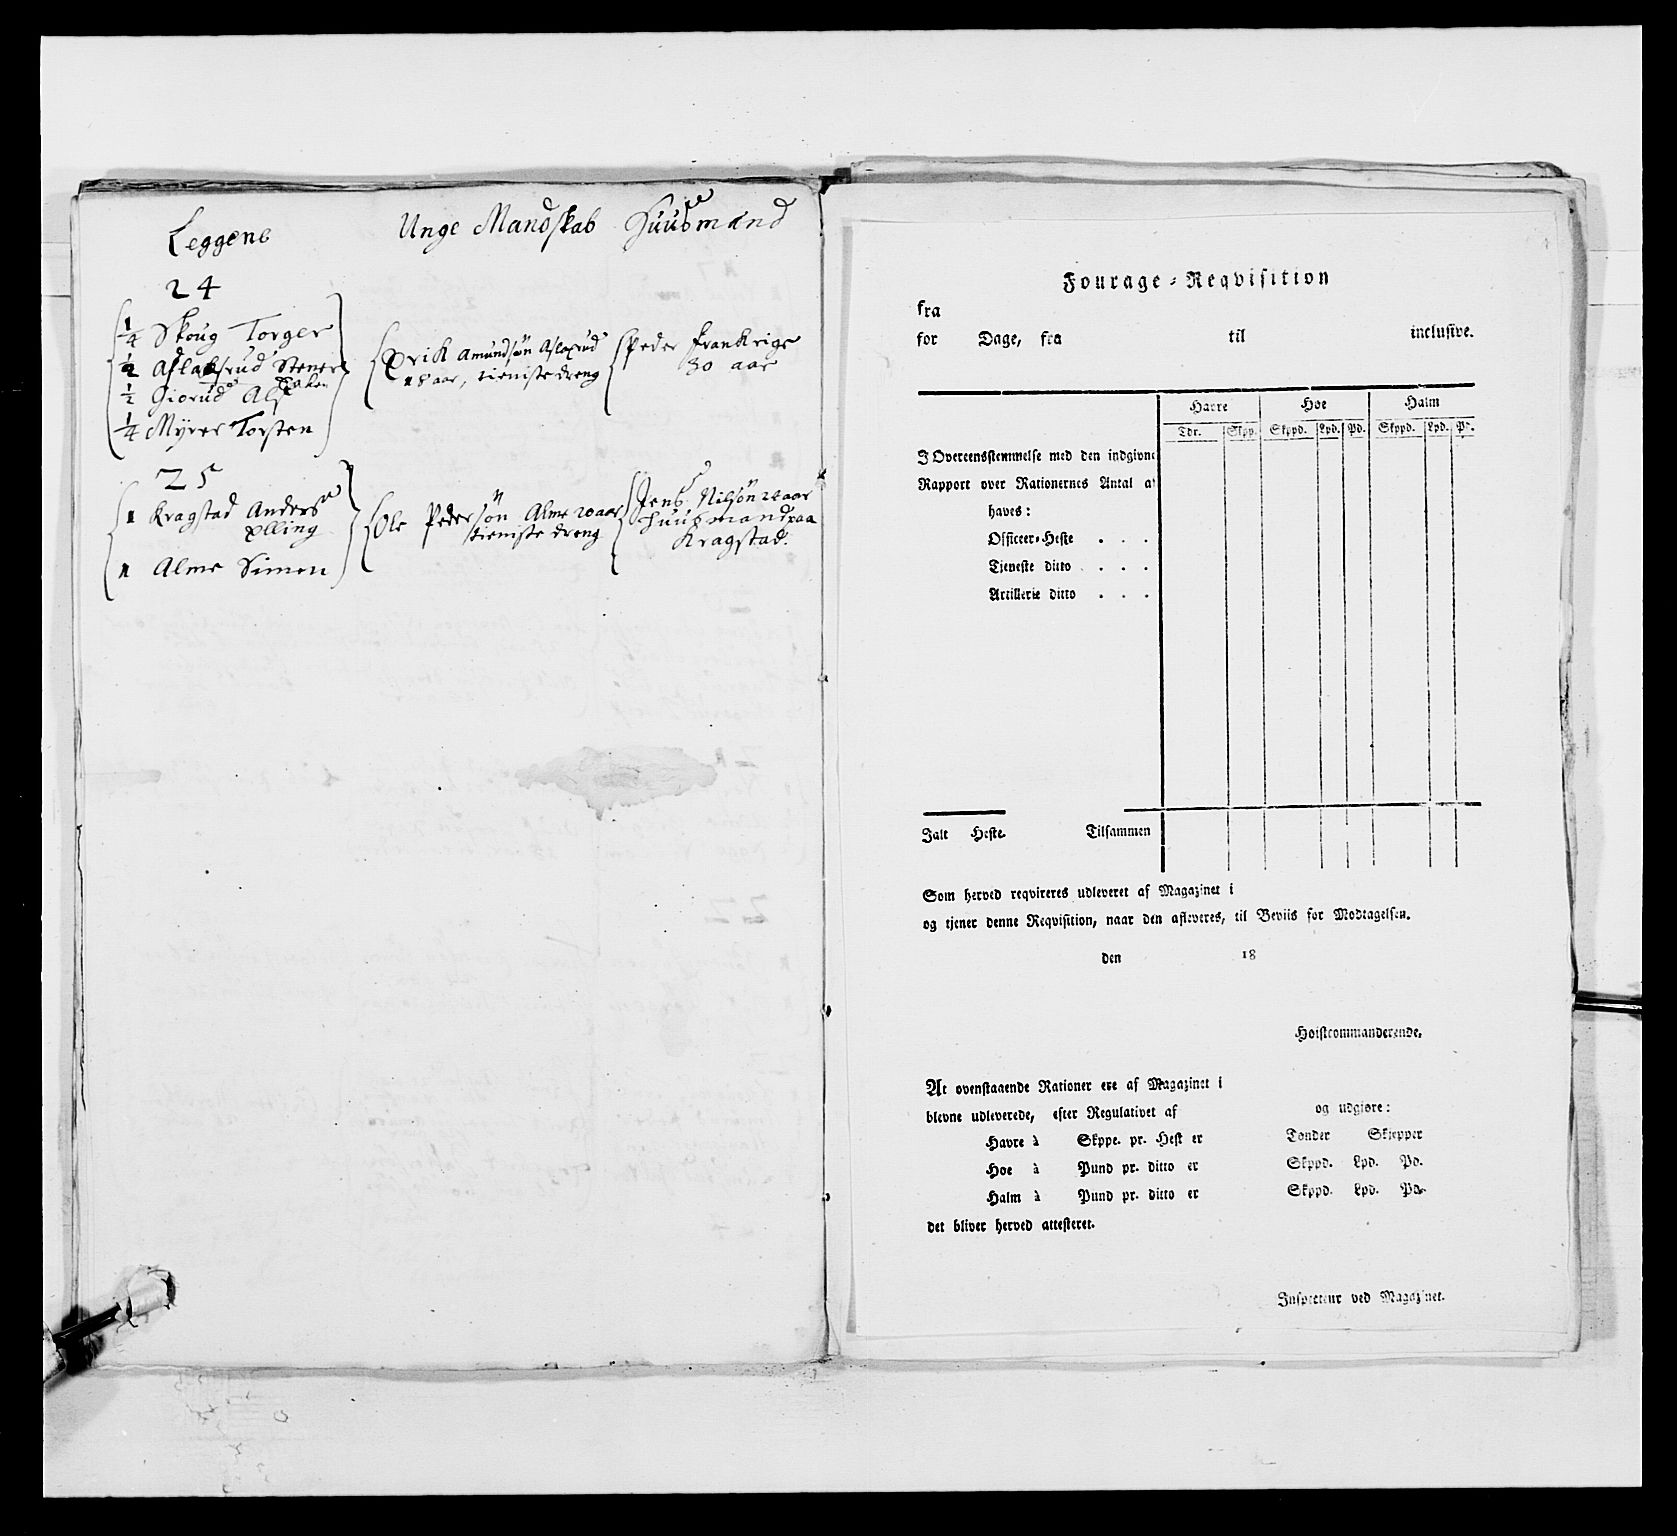 Leggene
Unge Mandskab
Huusmænd
24
1/4 Skoug Torger
1/2 Aslaksrud Stener
1/2 Giorud Alf
1/4 Myrer Torsten
Erik Amundsøn Aslaxrud
18 aar, tieniste dreng
Peder Frankrige
30 aar
25
1 Kragstad Anders
Elling
1 Alme Simen
Ole Pedersøn Alme 20 aar
tieniste dreng
Jens Nilsøn aar
huusmand paa
Kragstad.
Fourage-Reqvisition
fra
for Dage, fra til inclusive.
Havre Hoe Halm
Tdr. Skpp. Skppd. Lpd. Pd. Skppd. Lpd. Pd.
I Overeensstemmelse med den indgivne
Rapport over Rationernes Antal at
haves:
Officeer-Heste . . .
Tjeneste ditto . . .
Artillerie ditto . . .
Ialt Heste. Tilsammen
Som herved reqvireres udleveret af Magazinet i
og tjener denne Reqvisition, naar den afleveres, til Beviis for Modtagelsen.
den 18
Hoistcommanderende.
At ovenstaaende Rationer ere af Magazinet i
blevne udleverede, efter Regulativet af og udgiøre:
Havre à Skppe. pr. Hest er Tønder Skjepper
Hoe à Pund pr. ditto er Skppd. Lpd. Pd.
Halm à Pund pr. ditto er Skppd. Lpd. Pd.
det bliver herved attesteret.
Inspecteur ved Magazinet.